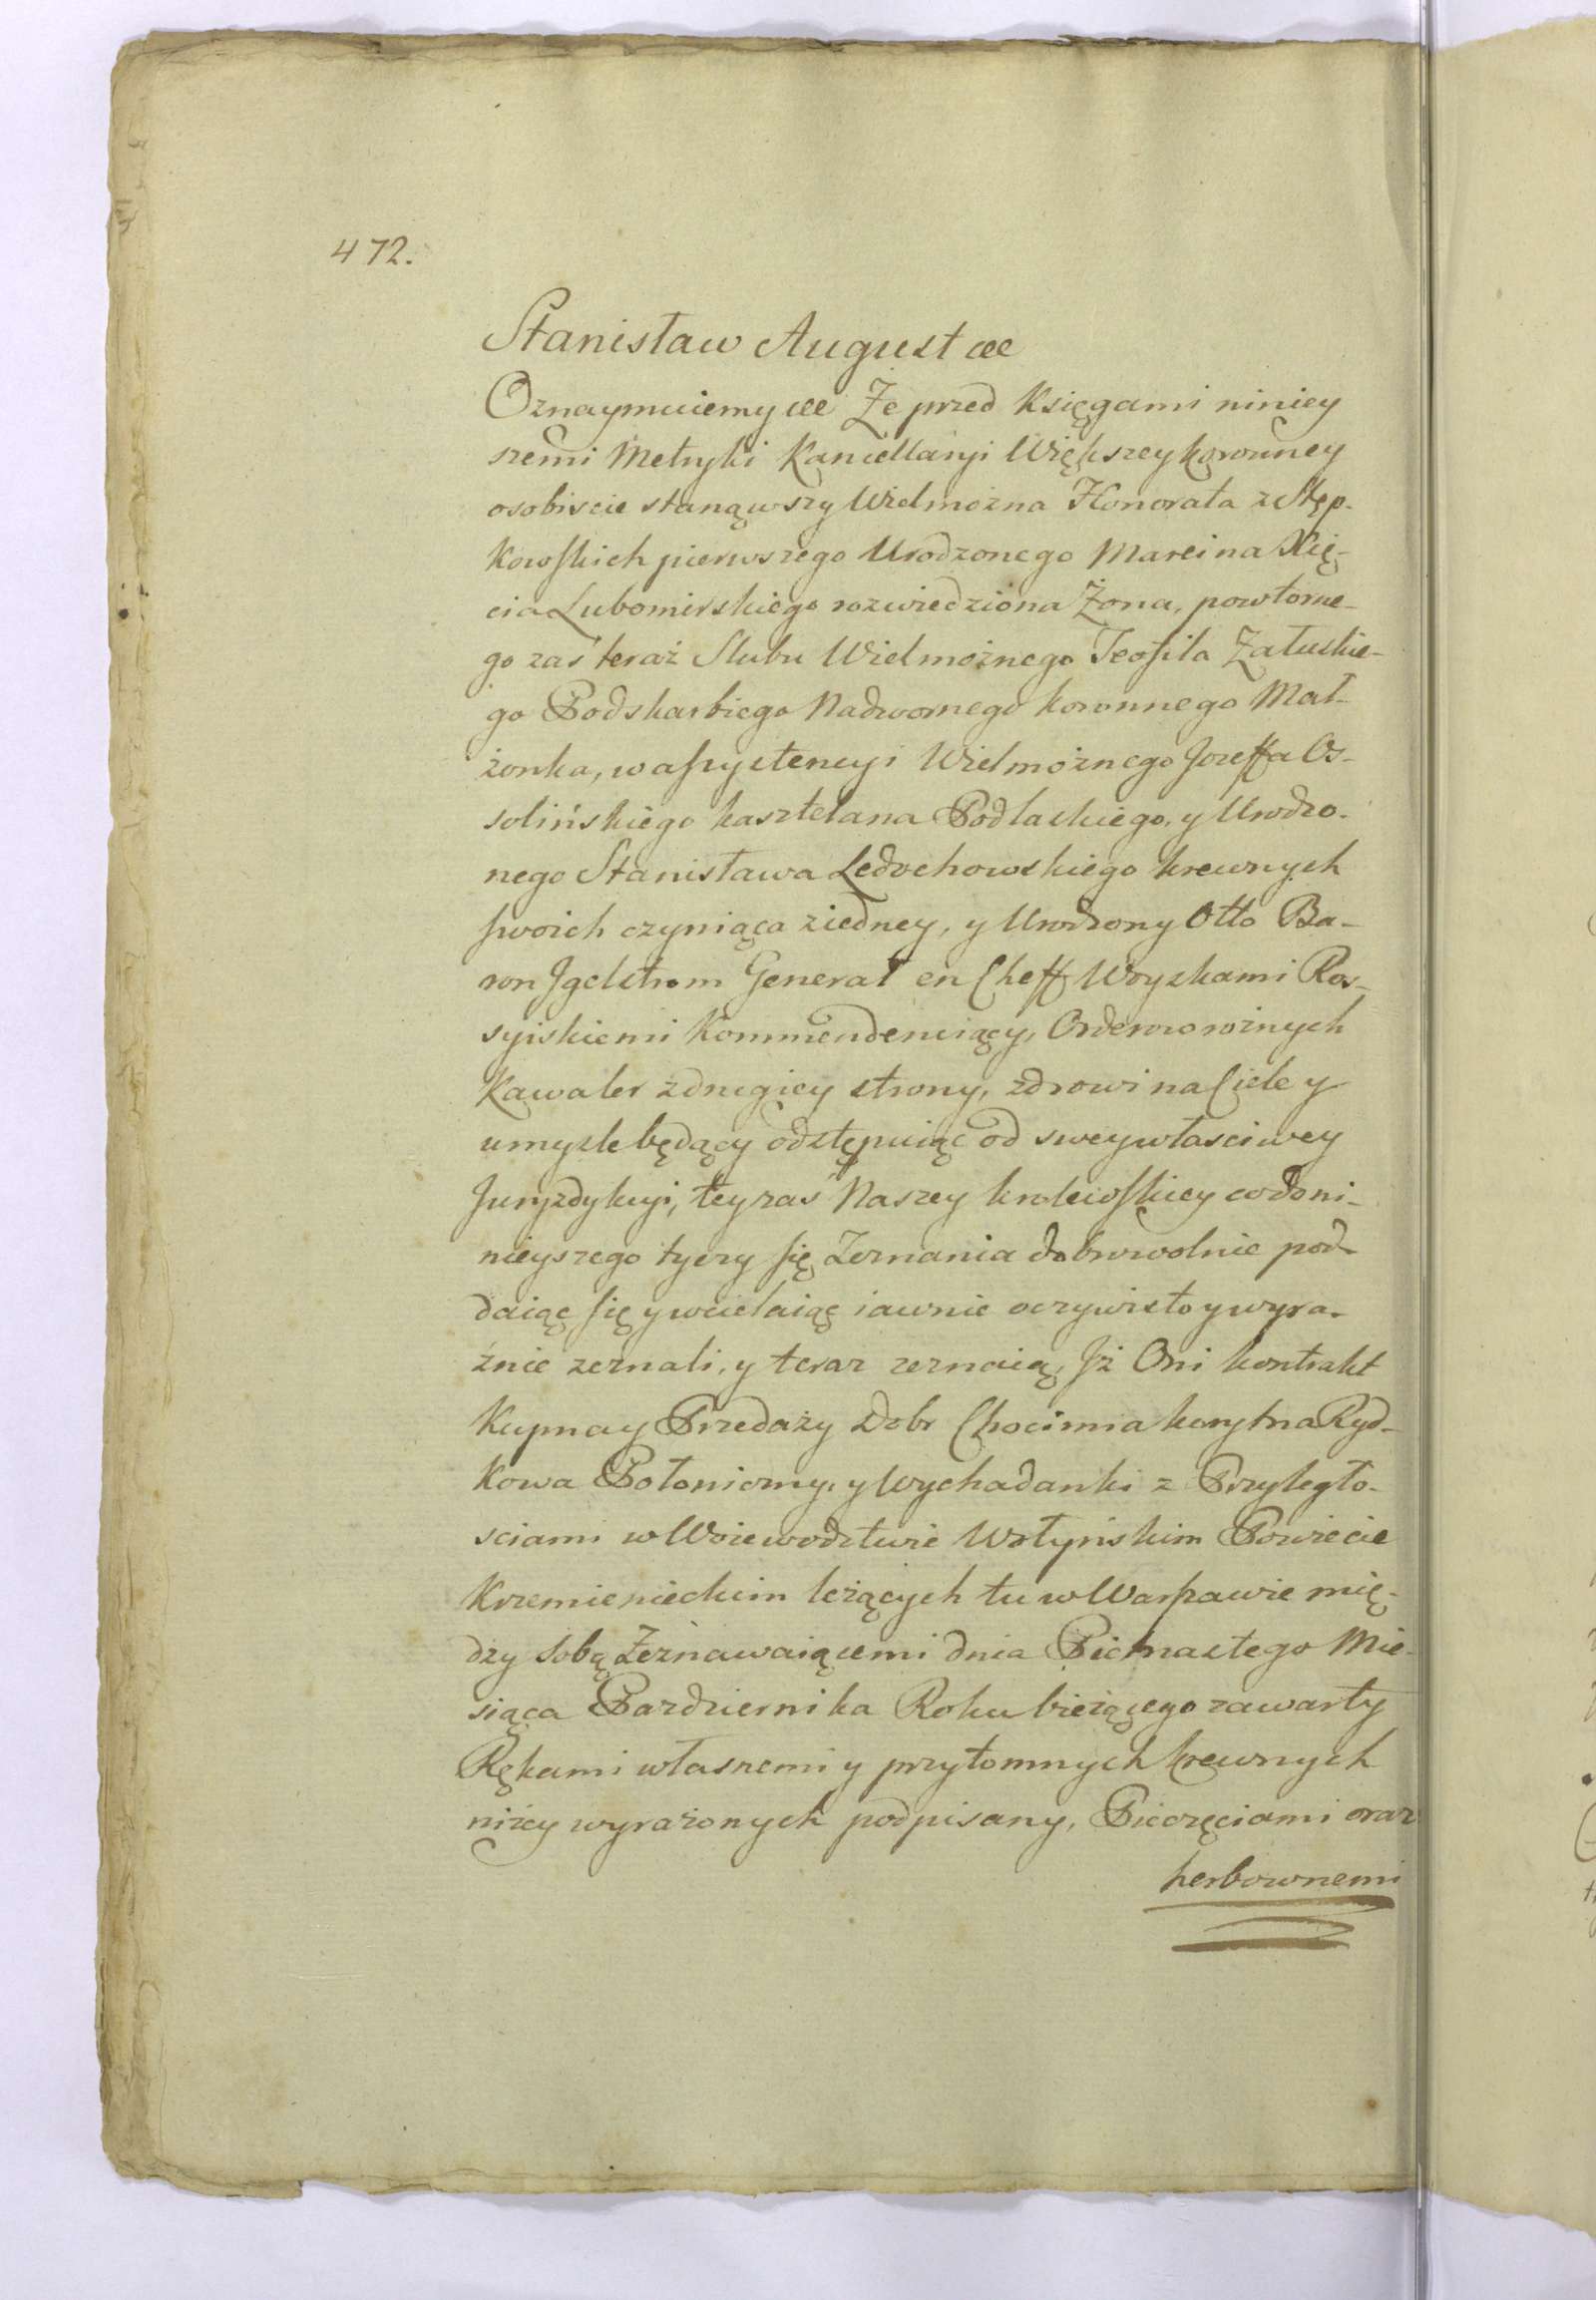 472.
Stanisław August etc
Oznaymuiemy etc Że przed Księgami niniey
szemi Metryki Kancellaryi Większey koronney
osobiscie stanąwszy Wielmożna Honorata z Stęp-
kowskich pierwszego Urodzonego Marcina Xię-
cia Lubomirskiego rozwiedziona Żona, powtorne-
go zaś teraż Slubu Wielmożnego Teofila Załuskie-
go Podskarbiego Nadwornego koronnego Mał-
żonka, w assystencyi Wielmożnego Jozeffa Os-
solińskiego kasztelana Podlaskiego, y Urodzo-
nego Stanisława Ledochowskiego krewnych
swoich czyniąca ziedney, y Urodzony Otto Ba-
ron Jgelstrom Generał en Cheff Woyskami Ros-
syiskiemi kommenderuiący, Orderow roźnych
Kawaler z drugiey strony, zdrowi na Ciele y
umysle będący odstępuiąc od swey własciwey
Juryzdykcyi, tey zas Naszey krolewskiey co do ni-
nieyszego tyczy się Zeznania dobrowolnie pod-
daiąc się y wcielaiąc iawnie oczywisto y wyra-
źnie zeznali, y teraz zeznaią, Jż Oni kontrakt
Kupna y Przedaży Dobr Chocimia korytna Ryd-
kowa Połoniczny, y Wychadanki z Przyległo-
sciami w Woiewodztwie Wołyńskim Powiecie
Krzemienieckim leżących tu w Warszawie mię-
dzy sobą Zeznawaiącemi dnia Pietnastego Mie-
siąca Pazdziernika Roku bieżącego zawarty
Rękami własnemi y przytomnych krewnych
niżey wyrażonych podpisany, Pieczęciami oraz
herbownemi